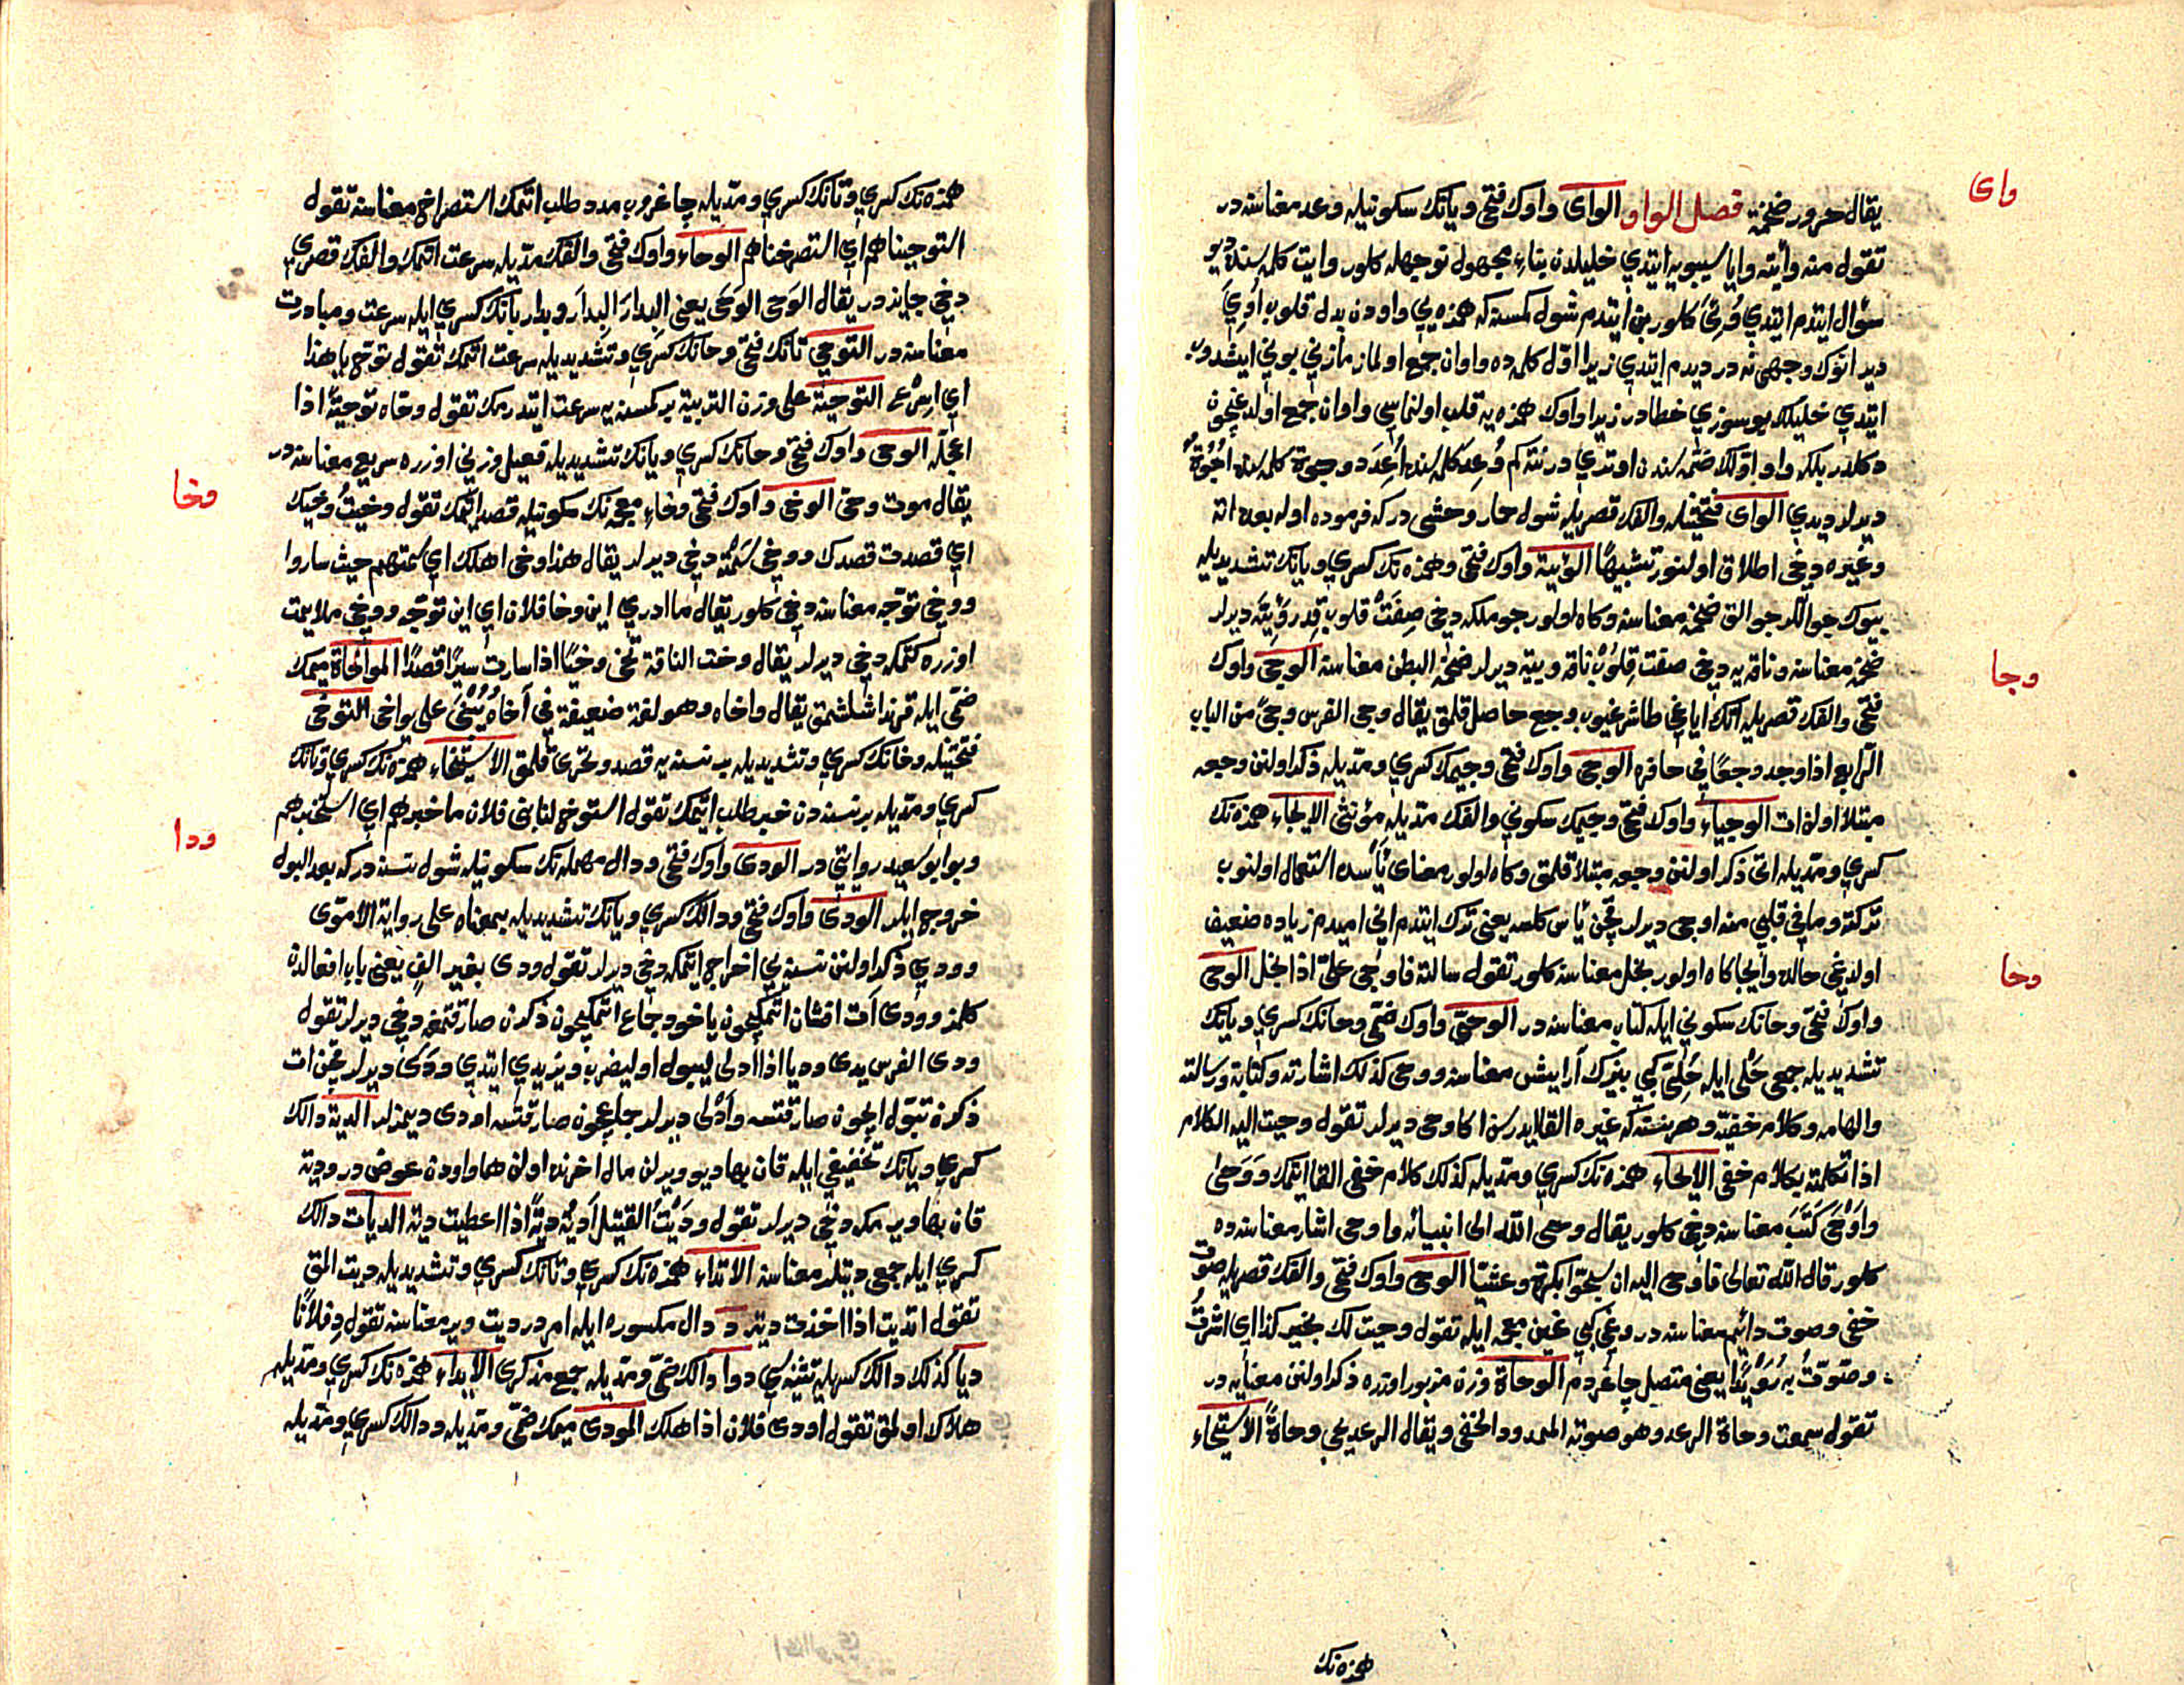 وای
يقال حرور ضخمة فصل الواو الوای واوك فتحی ويانك سكونيله وعد معناسنه در
تقول منه وأيته وايا سيبويه ايتدي خليلدن بناء مجهول توجيهله كلور وايت كلمه سنده ديو
سؤال ايتدم ايتدي وُئِيَ كلور بن ايتدم شول كمسنه كه همزه يي واودن بدل قلوب اُوِيَ
دير انوك وجهی نه در ديدم ايتدي زيرا اوّل كلمه ده واوان جمع اولماز مازني بوني ايشدوب
ايتدي خليلك بو سوزي خطادر زيرا واوك همزه يه قلب اولنماسي واوان جمع اولدغيچون
دكلدر بلكه واو اوّلك ضمّه سندن اوتري در نته كم وُعِدَ كلمه سنده اُعِدَ ووجوه كلمه سنده اُجُوه
ديرلر ديدي الوای فتحتيله والفك قصريله شول حمار وحشی در كه فربوده اوله بعده اته
وغيره دخی اطلاق اولنور تشبيهًا الوئية واوك فتحی وهمزه نك كسري ويانك تشديديله
بيوك جوالكه جوالق ضخمه معناسنه وكاه اولور چوملكه دخی صِفَتْ قلوب قِدر وَئِيّة ديرلر
ضخمه معناسنه وناقه يه دخی صفت قِلوب ناقة وئية ديرلر ضخمة البطن معناسنه الوجی واوك
وجا
فتحی والفك قصريله اتك اياغی طاش غيوب وجع حاصل قلمق يقال وجی الفرس وجیً من الباب
الرابع اذا وجد وجعًا فی حافره الوجی واوك فتحی وجيمك كسري ومدّيله ذكر اولنن وجعه
مبتلا اولان ات الوجياء واوك فتحی وجيمك سكوني والفك مدّيله مؤنثی الايجاء همزه نك
كسري ومدّيله اتی ذكر اولنن وجعه مبتلا قلمق وكاه اولور معنای يأسده استعمال اولنوب
تركته وما فی قلبي منه اوجی ديرلر قچن يأس كلسه يعنی ترك ايتدم انی اميدم زياده ضعيف
اولدغی حالده وايجا كاه اولور بخل معناسنه كلور تقول سالته فاوجی علیّ اذا بخل الوحی
وحا
واوك فتحی وحانك سكوني ايله كتاب معناسنه در الوحیّ واوك ضمّی وحانك كسري ويانك
تشديديله جمعی حَلْی ايله حُلِیّ كبي بيزك آرايش معناسنه ووحی كذلك اشارته وكتابة ورسالته
والهامه وكلام خفيّه وهر نسنه كه غيره القا ايدرسن اكا وحی ديرلر تقول وحيت اليه الكلام
اذا تكلمته بكلام خفی الايحاء همزه نك كسري ومدّيله كذلك كلام خفی القا ايتمك وَوَحَیٰ
واَوْحَی كَتَبَ معناسنه دخی كلور يقال وحی الله الی انبيائه واوحی اشار معناسنه ده
كلور قال الله تعالی فاوحی اليهم ان سبّحوا بكرة وعشيّا الوحی واوك فتحی والفك قصريله صوت
خفی وصوت دائم معناسنه در وغی كبي غين معجمه ايله تقول وحيت لك بخير كذا اي اشرتُ
وصوّتّ به رُوَيْدًا يعنی متصل چاغردم الوحاة وزن مزبور اوزره ذكر اولنن معنايه در
تقول سمعت وحاة الرعد وهو صوته الممدود الخفی ويقال الرعد يحی وحاةً الاستيحاء
همزه نك
همزه نك كسري وتانك كسري ومدّيله چاغروب مدد طلب اتمك استصراخ معناسنه تقول
استوحيناهم اي استصرخناهم الوحاء واوك فتحی والفك مدّيله سرعت اتمك والفك قصري
دخی جايزدر يقال الوَحَی الوَحَی يعنی البِدارَ البِدارَ وبدار بانك كسري ايله سرعت ومبادرت
معناسنه در التوحّی تانك فتحی وحانك كسري وتشديديله سرعت اتمك تقول توحّ يا هذا
اي اسرع التوحية علی وزن التربية بر كمسنه يه سرعت ايتدرمك تقول وحّاه توحيةً اذا
اعجله الوحیّ واوك فتحی وحانك كسري ويانك تشديديله فعيل وزني اوزره سريع معناسنه در
وخا
يقال موت وحیّ الوخی واوك فتحی وخاء معجمه نك سكونيله قصد اتمك تقول وخيتُ وخيك
اي قصدت قصدك ووخی سَمْته دخی ديرلر يقال هذا وخی اهلك اي سمتهم حيث ساروا
ووخی توجّه معناسنه دخی كلور يقال ما ادري اين وخا فلان اي اين توجّه ووخی ملايمت
اوزره كتمكه دخی ديرلر يقال وخت الناقة تخی وخيًا اذا سارت سيرًا قصدًا المواخاة ميمك
ضمّی ايله قرنداشلشمق يقال واخاه وهو لغة ضعيفة فی آخاه يُبْنی علی يواخی التوخّی
فتحتيله وخانك كسري وتشديديله بر نسنه يه قصد وتحرّی قلمق الاستيخاء همزه نك كسري وتانك
كسري ومدّيله بر نسنه دن خبر طلب اتمك تقول استوخ لنا بنی فلان ما خبرهم اي استخبرهم
ودا
وبو ابو سعيد روايتی در الودی واوك فتحی ودال مهمله نك سكونيله شول نسنه در كه بعد البول
خروج ايلر الودیّ واوك فتحی ودالك كسري ويانك تشديديله بمعناه علی رواية الاموّی
وودي ذكر اولنن نسنه يي اخراج ايتمكه دخی ديرلر تقول ودی بغير الف يعنی باب افعالدن
كلمز وودی آت افشان اتمكيچون ياخود جماع اتمكيچون ذكرن صارقتمغه دخی ديرلر تقول
ودی الفرس يدی وديا اذا ادلی ليبول او ليضرب ويزيدي ايتدي وَدَیٰ ديرلر قچن ات
ذكرن تبوّل ايچون صارقتسه وأدْلی ديرلر جماعيچون صارقتسه اودی ديمزلر الدية دالك
كسري ويانك تخفيفی ايله قان بها ديو ويرلن مال اخرنده اولن ها واودن عوض در وديه
قان بها ويرمكه دخی ديرلر تقول وَدَيْتُ القتيل اَديهِ ديةً اذا اعطيت ديته الديات دالك
كسري ايله جمعی ديتلر معناسنه الاتداء همزه نك كسري وتانك كسري وتشديديله ديت المق
تقول اتديت اذا اخذت ديته دِ دال مكسوره ايله امر در ديت وير معناسنه تقول دِ فلانًا
دِيا كذلك دالك كسريله تثنيه سي دوا دالك ضمّی ومدّيله جمع مذكری الايداء همزه نك كسري ومدّيله
هلاك اولمق تقول اودی فلان اذا هلك المودی ميمك ضمّی ومدّيله ودالك كسري ومدّيله